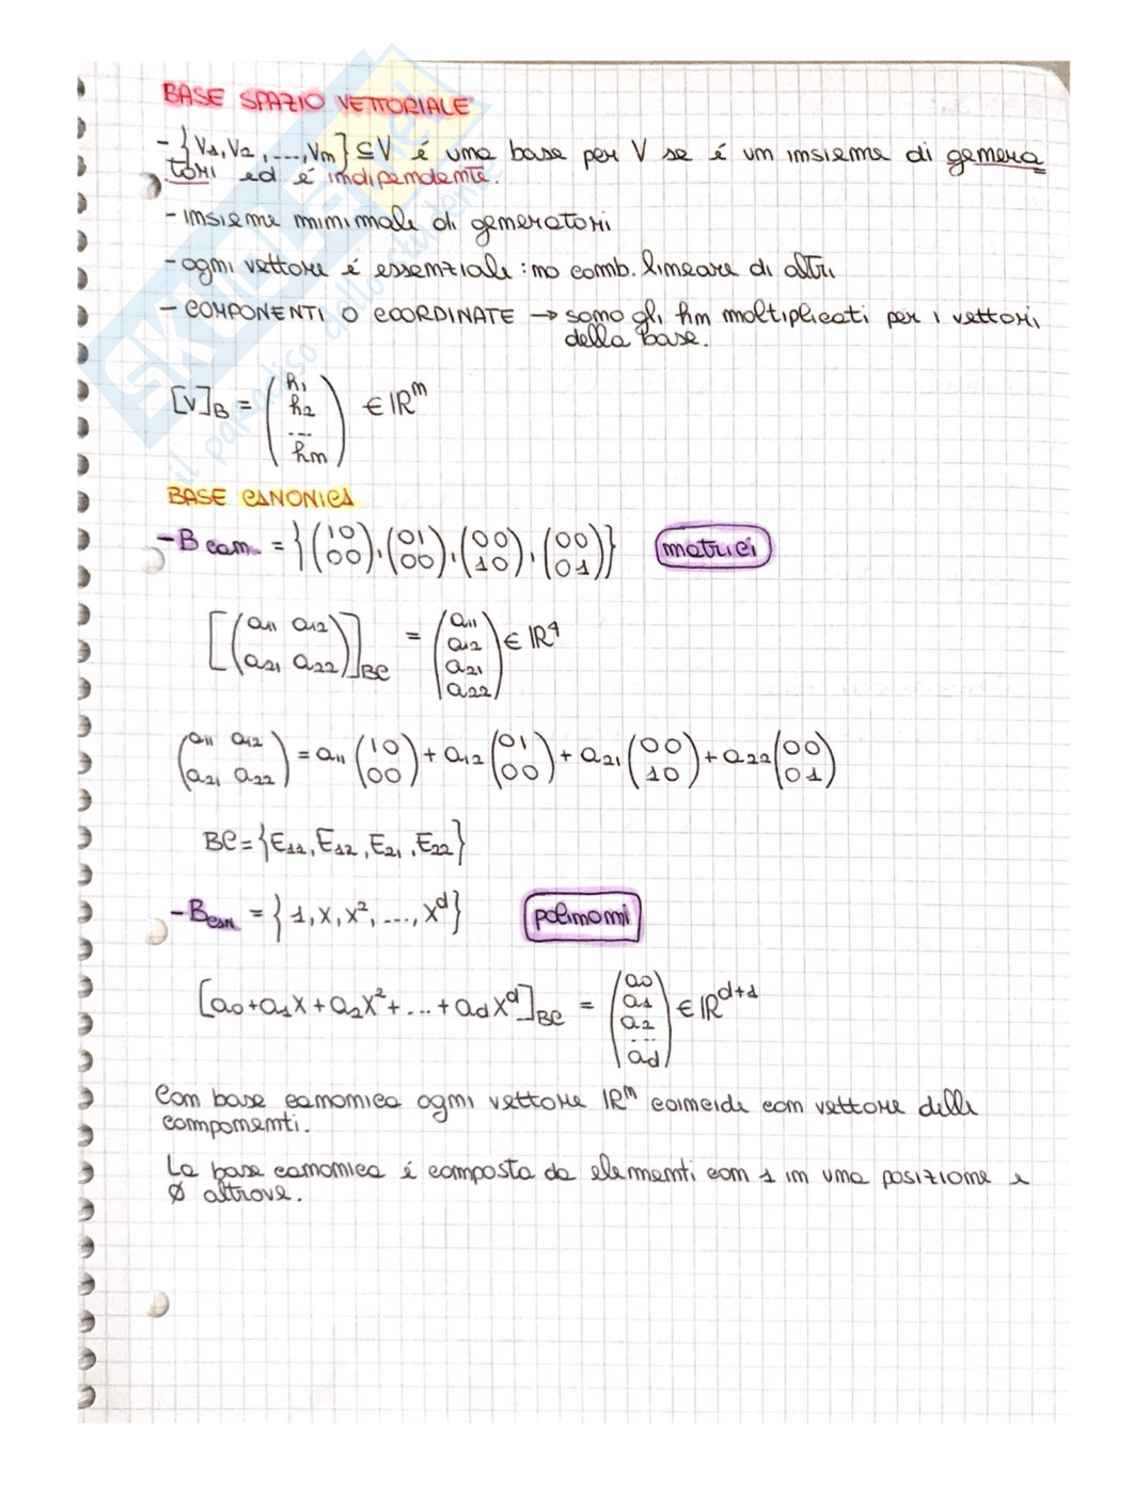 BASE SPAZIO VETTORIALE
- {V1, V2, ..., Vn} ⊆ V é una base per V se é un insieme di genera
tori ed é indipendente.
- insieme minimale di generatori
- ogni vettore é essenziale: no comb. lineare di altri
- COMPONENTI O COORDINATE → sono gli hn moltiplicati per i vettori
della base.
[V]B = (h1 h2 ... hn) ∈ IRⁿ
BASE CANONICA
- B can. = {(1 0 0 0), (0 1 0 0), (0 0 1 0), (0 0 0 1)} matrici
[(a11 a12 a21 a22)]BC = (a11 a12 a21 a22) ∈ IR⁴
(a11 a12 a21 a22) = a11 (1 0 0 0) + a12 (0 1 0 0) + a21 (0 0 1 0) + a22 (0 0 0 1)
BC = {E11, E12, E21, E22}
- Bcan = {1, x, x², ..., x^d} polinomi
[a0 + a1x + a2x² + ... + adx^d]BC = (a0 a1 a2 ... ad) ∈ IR^d+1
Con base canonica ogni vettore IRⁿ coincide con vettore delle
componenti.
La base canonica é composta da elementi con 1 in una posizione e
Ø altrove.